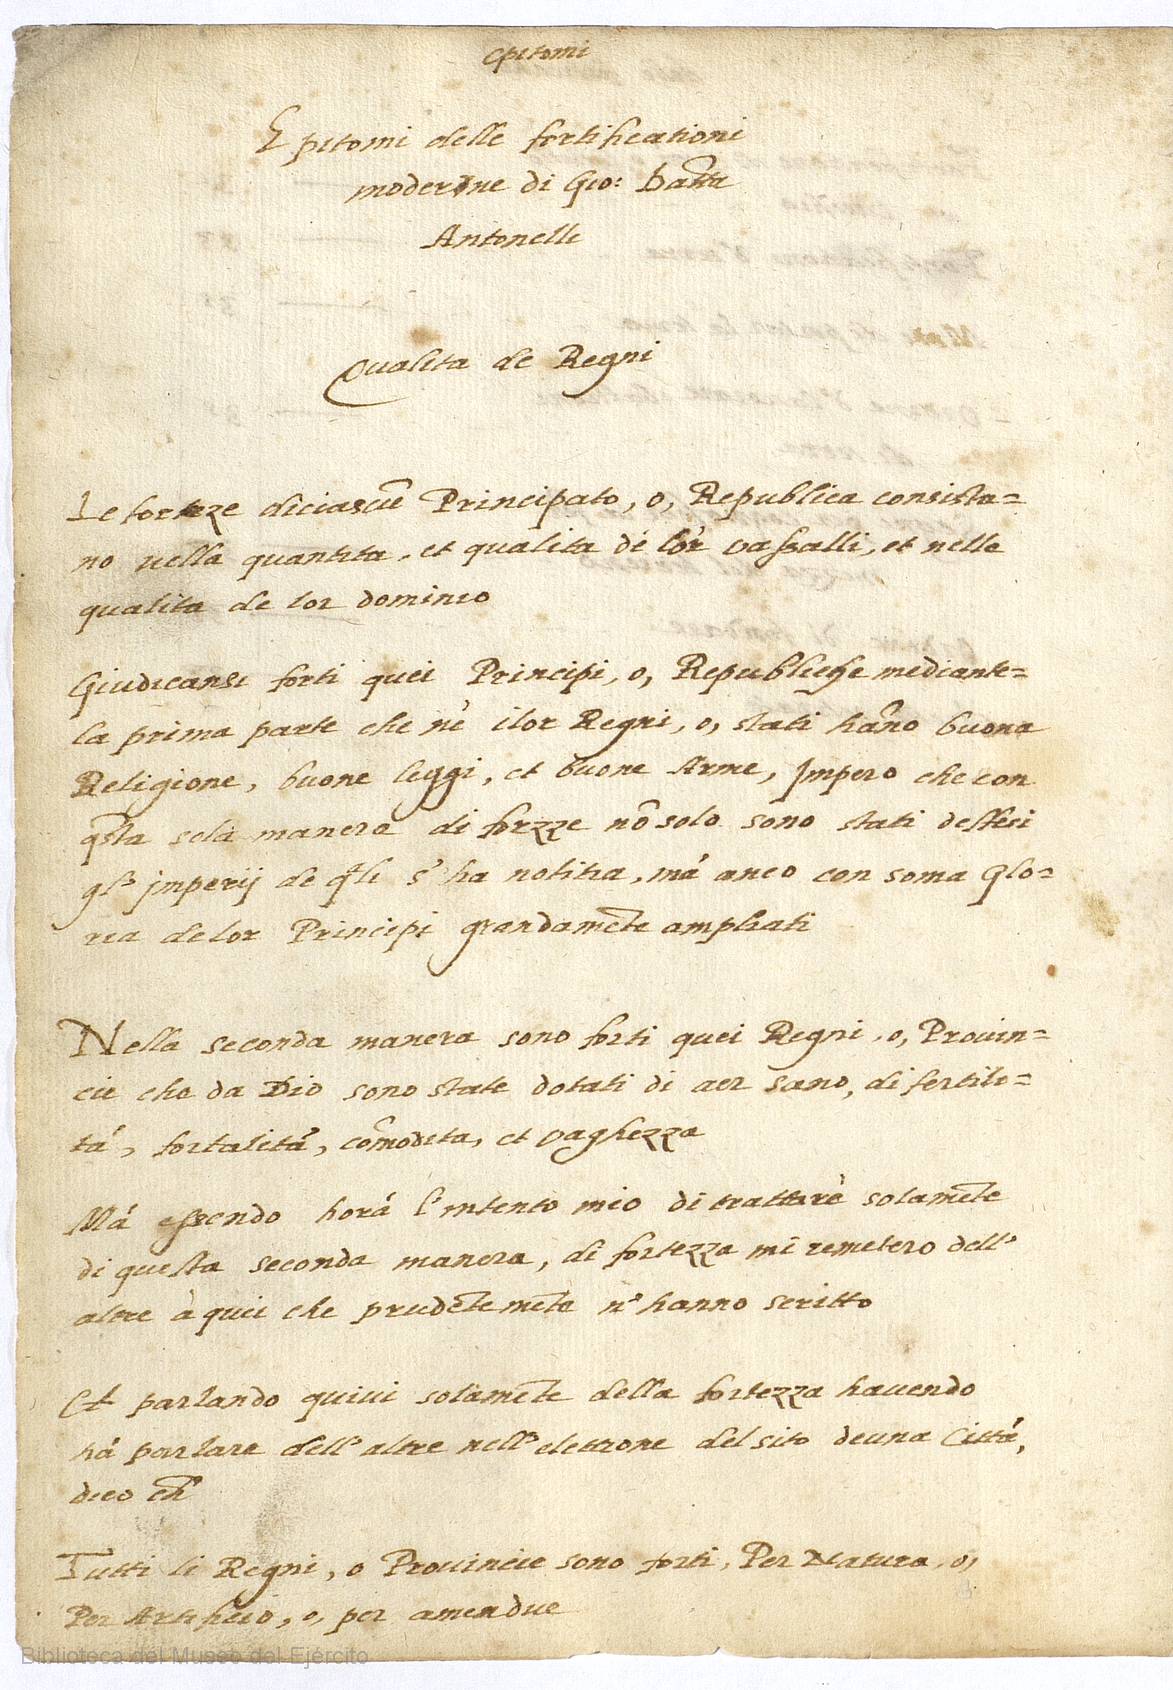 Epitomi
Epitomi delle fortificationi
moderne di Gio: batta
Antonelle
Qualita de Regni
Le forteze diciascũe Principato, o, Republica consista=
no nella quantita, et qualita de lor vassalli, et nelle
qualita de lor dominio
Giudicansi forti quei Principi, o, Republiche mediante=
la prima parte che ne i lor Regni, o, stati hãno buona
Religione, buone leggi, et buone Arme, Impero che con
q̃sta sola manera di forzze nõ solo sono stati deffesi
gl' jmperij de q̃li s' ha notitia, má anco con soma glo=
ria de lor Principi grandamẽte ampliati
Nella seconda manera sono forti quei Regni, o, Prouin=
cie che da Dio sono state dotati di aer sano, di fertili=
tá, fortalitá, cõmodita, et vaghezza
Má essendo horá l'intento mio di trattare solamẽte
di questa seconda manera, di fortezza mi remetero dell'
altre à quei che prudẽtemẽte n' hanno scritto
Et parlando quiui solamẽte della fortezza hauendo
há parlare dell' altre nell' elettione del sito de una Cittá,
dico ch̃
Tutti li Regni, o Prouincie sono forti, Per Natura, o,
Per Artificio, o, per amendue
Biblioteca del Museo del Ejército